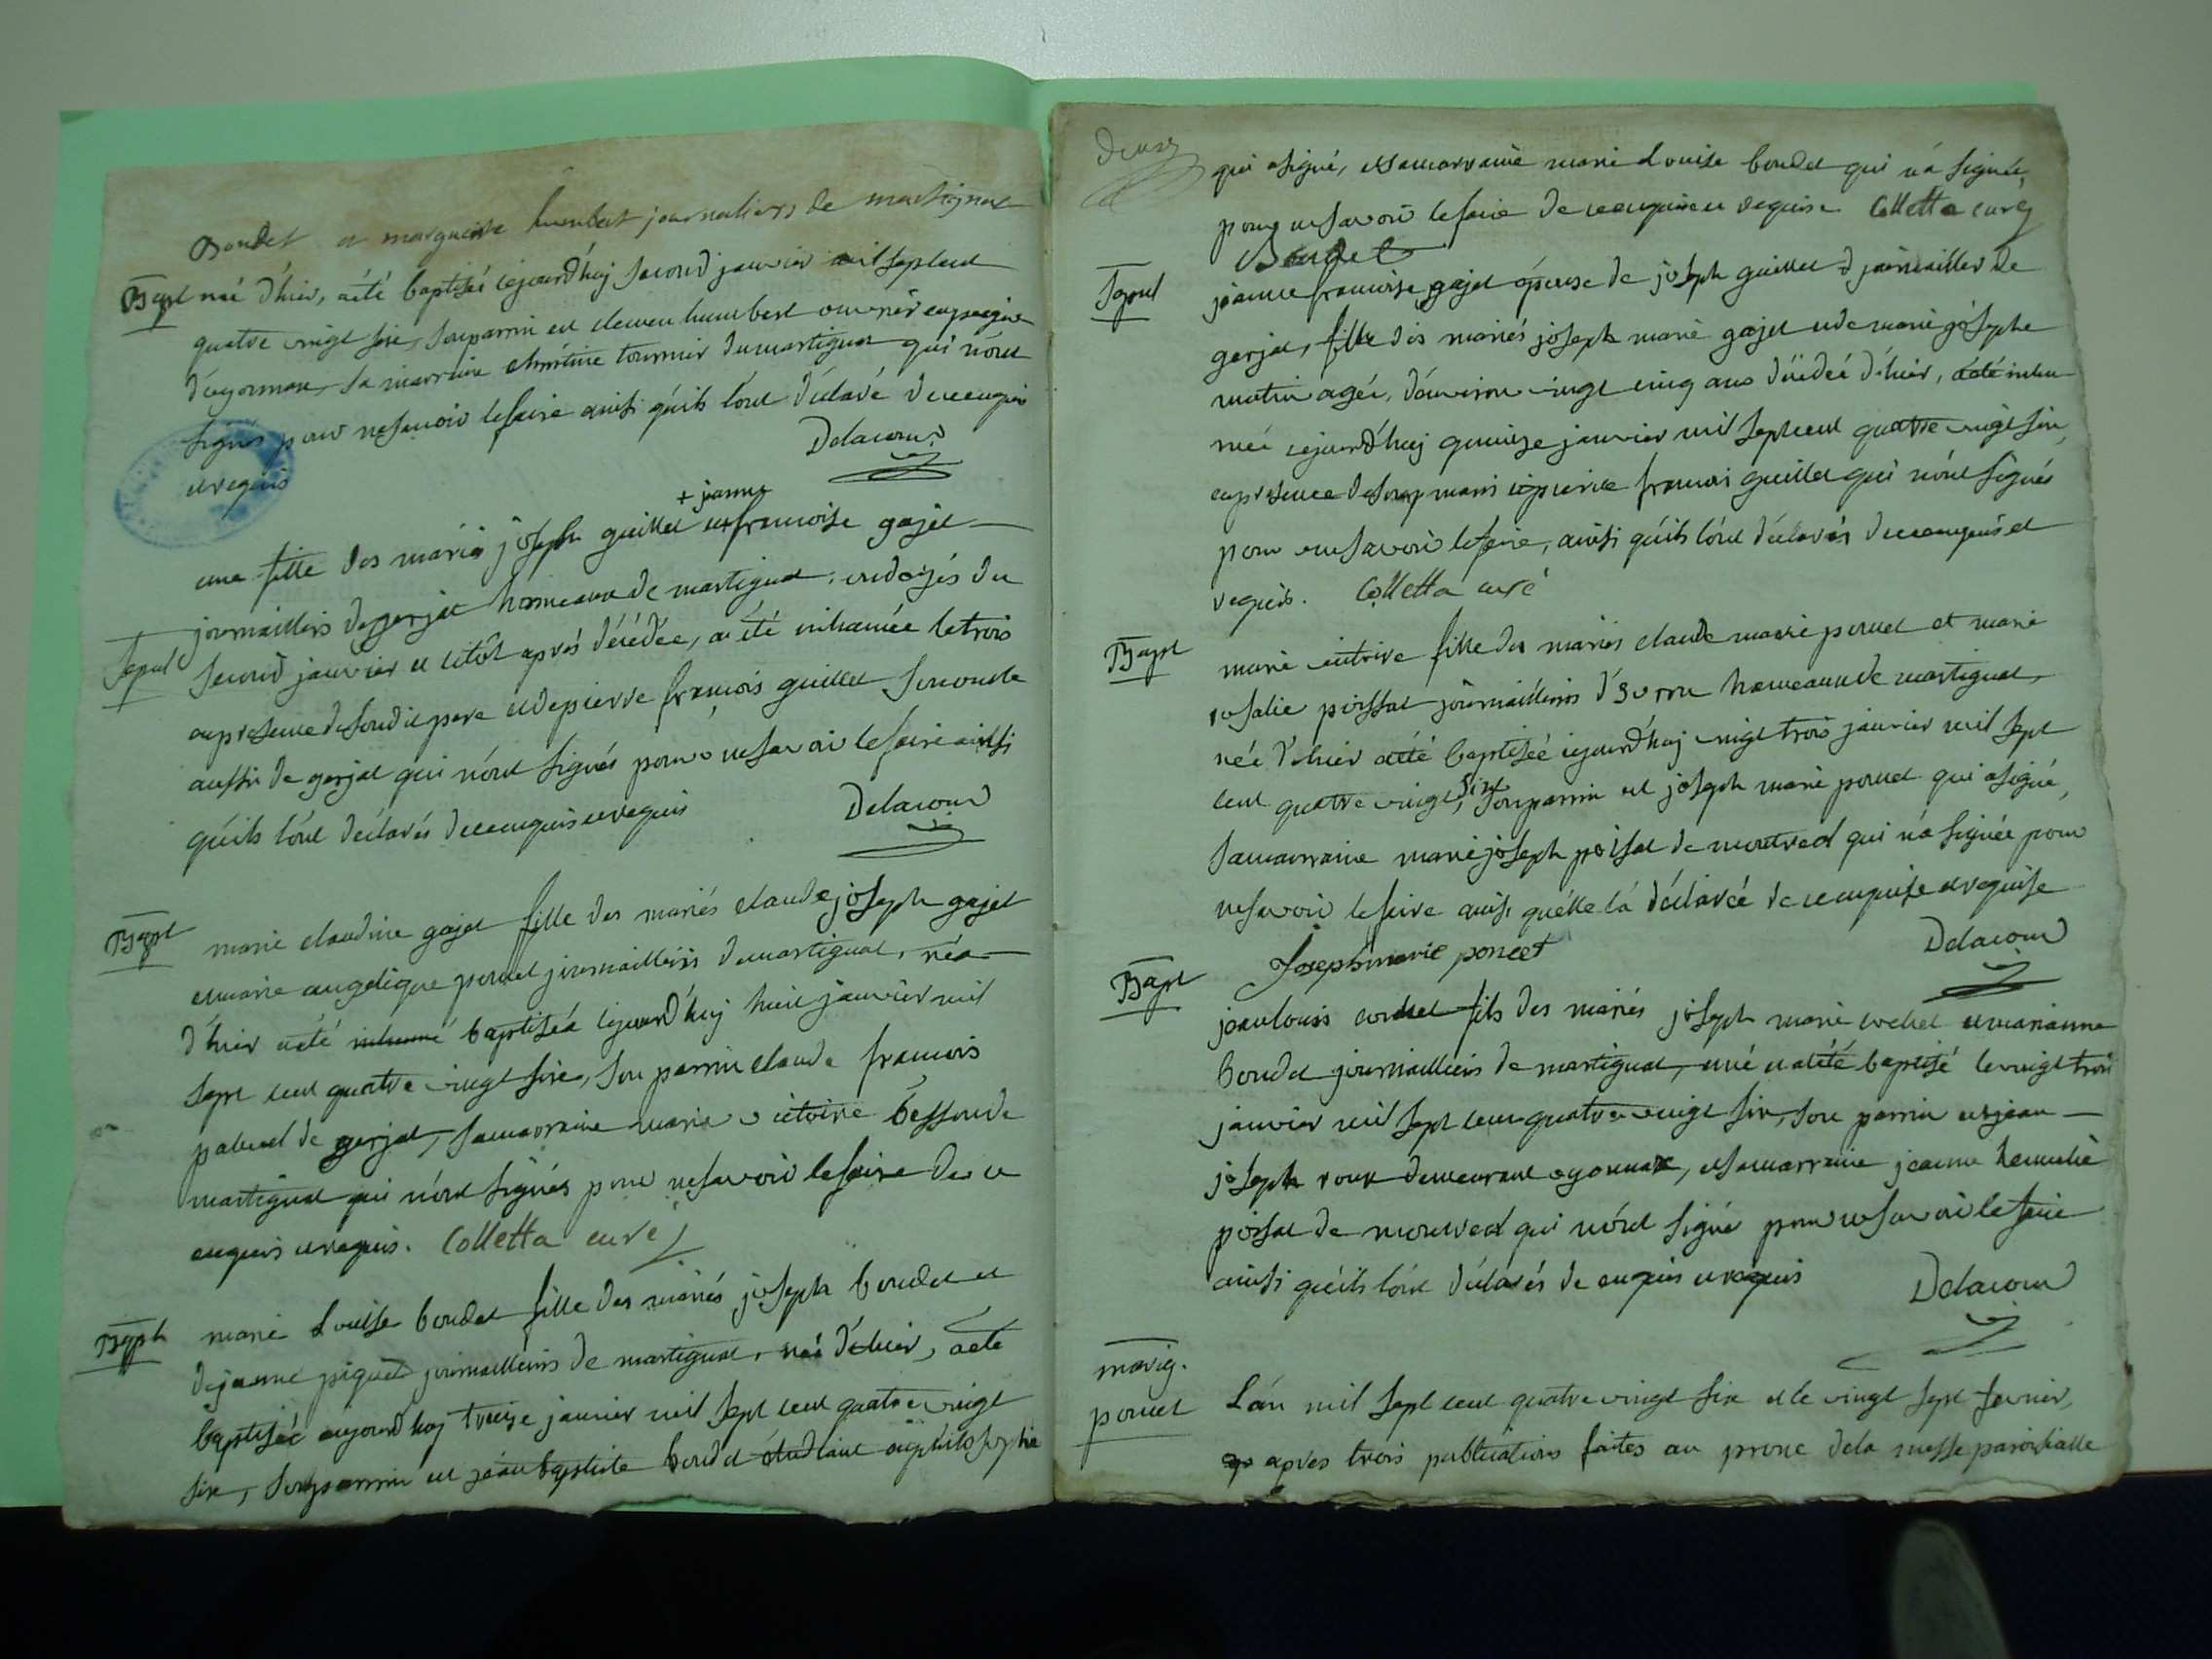 Boudet et marguerite humbert journaliers de martignat
Bapt né d'hier, aété baptisé cejourdhuj second janvier mil sept cent
quatre vingt six, son parrin est clement humbert ouvrier en peigne
d'oyonnax, sa marraine christine tournier de martignat qui n'ont
signés pour ne savoir le faire ainsi qu'ils l'ont déclaré de ce enquis
et requis Delacour
+ jeanne
une fille des mariés joseph guillet et + francoise gajet
Sepult journailliers de gerjat hameaux de martignat, ondoyés du
second janvier et sitôt après décédée, a été inhumée le trois
en presence de son dit pere et de pierre françois guillet son oncle
aussi de gerjat qui n'ont signés pour ne savoir le faire ainsi
qu'ils l'ont déclarés de ce enquis et requis Delacour
Bapt marie claudine gajet fille des mariés claude joseph gajet
et marie angelique poncet journailliers de martignat, née
d'hier aété inhumé baptisée cejourdhuj huit janvier mil
sept cent quatre vingt six, son parrin claude francois
de gerjat, sa marraine marie victoire besson de
martignat qui n'ont signés pour ne savoir le faire de ce
enquis et requis. Colletta curé
Bapt marie Louise boudet fille des mariés joseph boudet et
de jeanne piquet journailliers de martignat, née d'hier, aété
baptisée aujourdhuj treize janvier mil sept cent quatre vingt
six, son parrin est jean baptiste boudet étudiant en philosophie
deux
qui a signé, et sa marraine marie Louise boudet qui n'a signée,
pour ne savoir le faire de ce enquise et requise Colletta curé
Boudet
Sepul jeanne francoise gajet épouse de joseph guillet journaillier de
gerjat, fille des mariés joseph marie gajet et de marie josephe
matin agée, d'environ vingt cinq ans décédée d'hier, aété inhu
mée cejourdhuj quinze janvier mil sept cent quatre vingt six,
en presence de son mari et pierre francois guillet qui n'ont signés
pour ne savoir le faire, ainsi qu'ils l'ont déclarés de ce enquis et
requis. Colletta curé
Bapt marie fille des mariés claude marie poncet et marie
rosalie poissat journailliers d' hameaux de martignat,
née d'hier aété baptisée cejourdhuj vingt trois janvier mil sept
cent quatre vingt six, son parrin est joseph marie poncet qui a signé,
sa marraine marie joseph poissat de montreal qui n'a signée pour
ne savoir le faire ainsi qu'elle l'a déclarée de ce enquise et requise
Joseph marie poncet Delacour
Bapt jean louis cochet fils des mariés joseph marie cochet et marianne
boudet journailliers de martignat, né et a été baptisé le vingt trois
janvier mil sept cent quatre vingt six, son parrin est jean
joseph roux demeurant oyonnax, et sa marraine jeanne
poissat de montreal qui n'ont signé pour ne savoir le faire
ainsi qu'ils l'ont déclarés de enquis et requis Delacour
mariag.
poncet L'an mil sept cent quatre vingt six et le vingt sept fevrier,
après trois publications faites au prone de la messe paroissialle